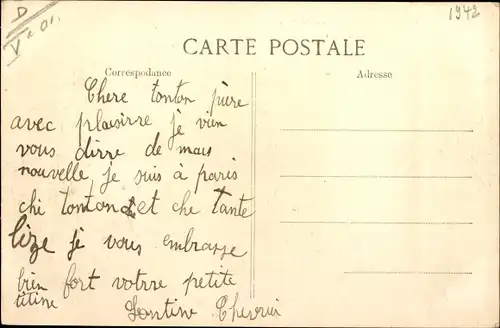 D
V
1942
CARTE POSTALE
Correspodance
Adresse
Chere tonton père
avec plaisirre je vien
vous dirre de mais
nouvelle, je suis à paris
chi tonton et che tante
lize je vous embrasse
bien fort votre petite
titine